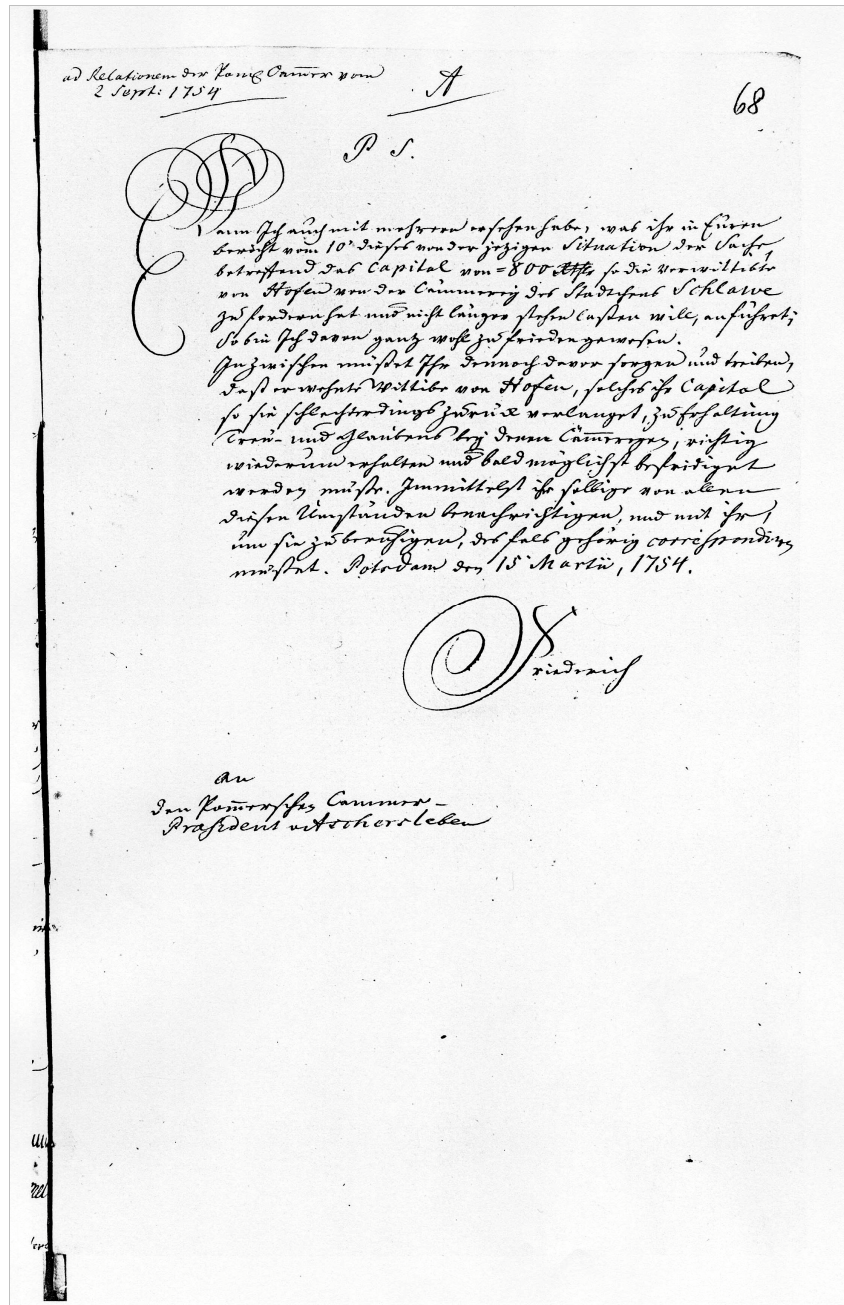 ad Relationem der Pom̃ Cam̃er vom
2 Sept: 1754
A
68
P S.
Wann Ich auch mit mehrern ersehen habe, was ihr in Euren
bericht vom 10t dieses von der jezigen Situation der Sache,
betreffend das Capital von =800 Rthlr so die verwittibte
von Hofen von der Cämmerey des Städtchens Schlawe
zu fordern hat und nicht länger stehen laßen will, anführet;
So bin Ich davon ganz wohl zufrieden gewesen.
Inzwischen müßet Ihr dennoch davor sorgen und treiben,
daß erwehnte Wittibe von Hofen, solches ihr Capital
so sie schlechterdings zurück verlanget, zu Erhaltung
Treu- und Glaubens bey denen Cämmereyen, richtig
wiederum erhalten und bald möglichst befridiget
werden müße. Immittelst ihr selbige von allen
diesen Umständen benachrichtigen, und mit ihr,
um sie zu beruhigen, des fals gehörig correspondiren
müßet. Potsdam den 15 Martii, 1754.
Friederich
An
den Pom̃erschen Cammer-
Præsident v Aschersleben